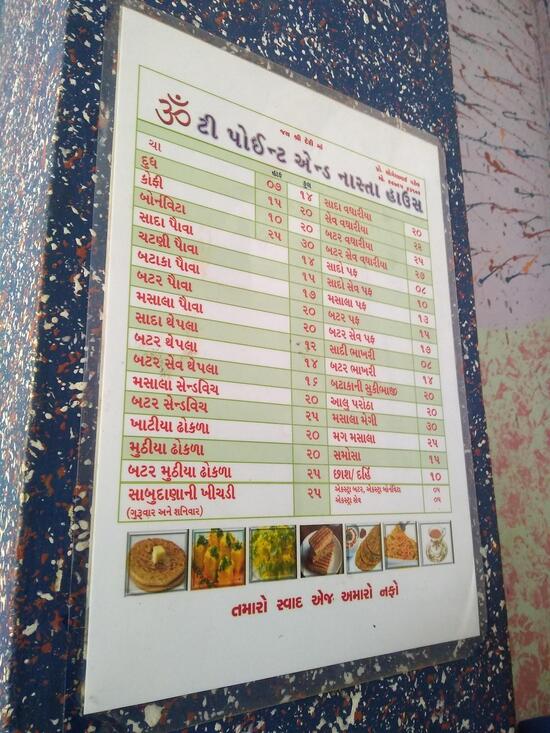 જય શ્રી દેવી માં
ૐ ટી પોઈન્ટ એન્ડ નાસ્તા હાઉસ
હાફ ફુલ
ચા ૦૭ ૧૪ સાદા વઘારીયા ૨૦
દુધ ૧૫ ૨૦ સેવ વઘારીયા ૨૨
કોફી ૧૦ ૨૦ બટર વઘારીયા ૨૫
બોર્નવિટા ૨૫ ૩૦ બટર સેવ વઘારીયા ૨૭
સાદા પૌવા ૧૪ સાદો પફ ૦૮
ચટણી પૌવા ૧૫ સાદો સેવ પફ ૧૦
બટાકા પૌવા ૧૭ મસાલા પફ ૧૩
બટર પૌવા ૨૦ બટર પફ ૧૫
મસાલા પૌવા ૨૦ બટર સેવ પફ ૧૭
સાદા થેપલા ૧૨ સાદી ભાખરી ૦૮
બટર થેપલા ૧૪ બટર ભાખરી ૧૪
બટર સેવ થેપલા ૧૬ બટાકાની સુકીભાજી ૨૦
મસાલા સેન્ડવિચ ૨૦ આલુ પરોઠા ૨૦
બટર સેન્ડવિચ ૨૫ મસાલા મેગી ૩૦
ખાટિયા ઢોકળા ૨૦ મગ મસાલા ૨૫
મુઠીયા ઢોકળા ૨૦ સમોસા ૧૫
બટર મુઠીયા ઢોકળા ૨૫ છાશ/દહિં ૧૦
સાબુદાણાની ખીચડી ૨૫ એકસ્ટ્રા બટર, એકસ્ટ્રા બોર્નવિટા ૦૫
(ગુરૂવાર અને શનિવાર) એકસ્ટ્રા સેવ ૦૫
તમારો સ્વાદ એજ અમારો નફો